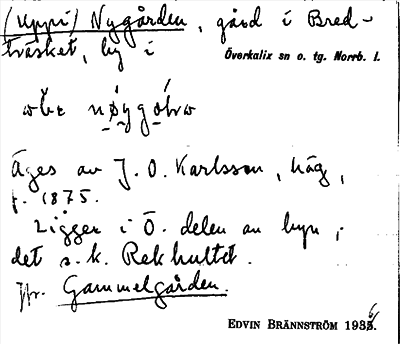 (Uppi) Nygården, gård i Bred-
träsket, by i
Överkalix sn o. tg. Norrb. l.
Äges av J. O. Karlsson, häg,
f. 1875.
Ligger i Ö. delen av byn i
det s.k. Rekhultet.
Jfr. Gammelgården.
EDVIN BRÄNNSTRÖM 1936.